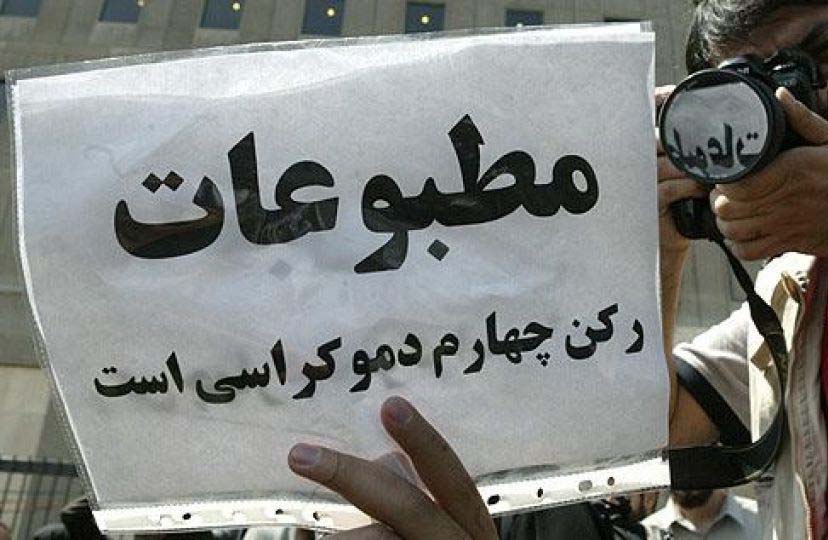 مطبوعات
رکن چهارم دموکراسی است
مطبوعات